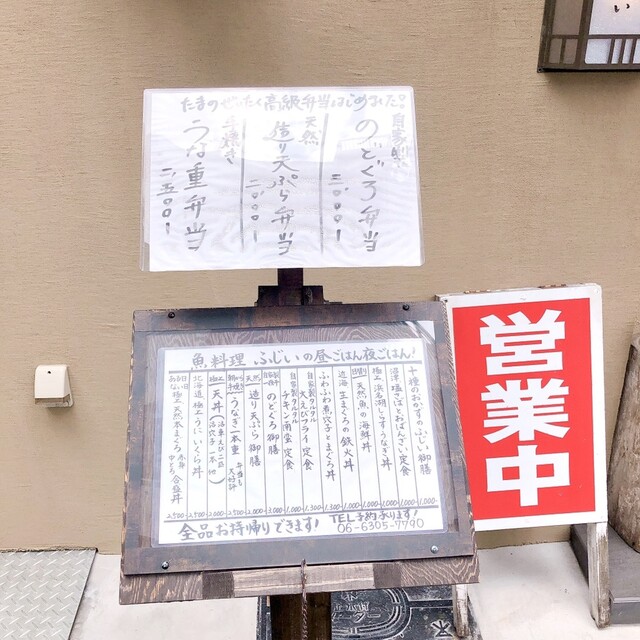 たまのぜいたく高級弁当はじめました!
自家製
のどぐろ弁当
三、〇〇〇円
天然
造り天ぷら弁当
二、〇〇〇円
うな重弁当
二、五〇〇円
魚料理 ふじいの昼ごはん夜ごはん!
十種のおかずのふじい御膳 1,000
定食 1,000
極上 浜名湖しらすうなぎ丼 1,000
天然魚の海鮮丼 1,000
近海生まぐろの鉄火丼 1,500
ふわふわ煮穴子とまぐろ丼 1,300
自家製タルタル 大えびフライ定食 1,000
自家製タルタル チキン南蛮定食 1,000
のどぐろ御膳 3,000
天然 造り天ぷら御膳 2,000
うなぎ一本重 2,500
極上 天丼 2,000
北海道極上うにいくら丼 2,500
天然本まぐろ 赤身 中とろ 食合丼 2,500
全品お持帰りできます!
TEL予約承ります!
06-6305-7790
営業中
い